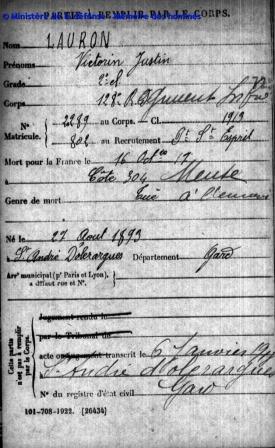 © Ministère de la Défense - Mémoire des hommes
PARTIE À REMPLIR PAR LE CORPS.
Nom LAURON
Prénoms Victorin Justin
Grade 2e cl
Corps 128e Régiment
N° 2289 au Corps. — Cl. 1913
Matricule. 802 au Recrutement Pt St Esprit
Mort pour la France le 16 Octobre 17
à Côte 304 Meuse
Genre de mort Tué à l'ennemi
Né le 27 Août 1893
à St André D'olérargues Département Gard
Arrt municipal (pr Paris et Lyon),
à défaut rue et N°.
Cette partie n'est pas à remplir par le Corps.
Jugement rendu le
par le Tribunal de
acte ou jugement transcrit le 6 Janvier
St André d'olérargues
Gard
N° du registre d'état civil
101-708-1922. [26434]